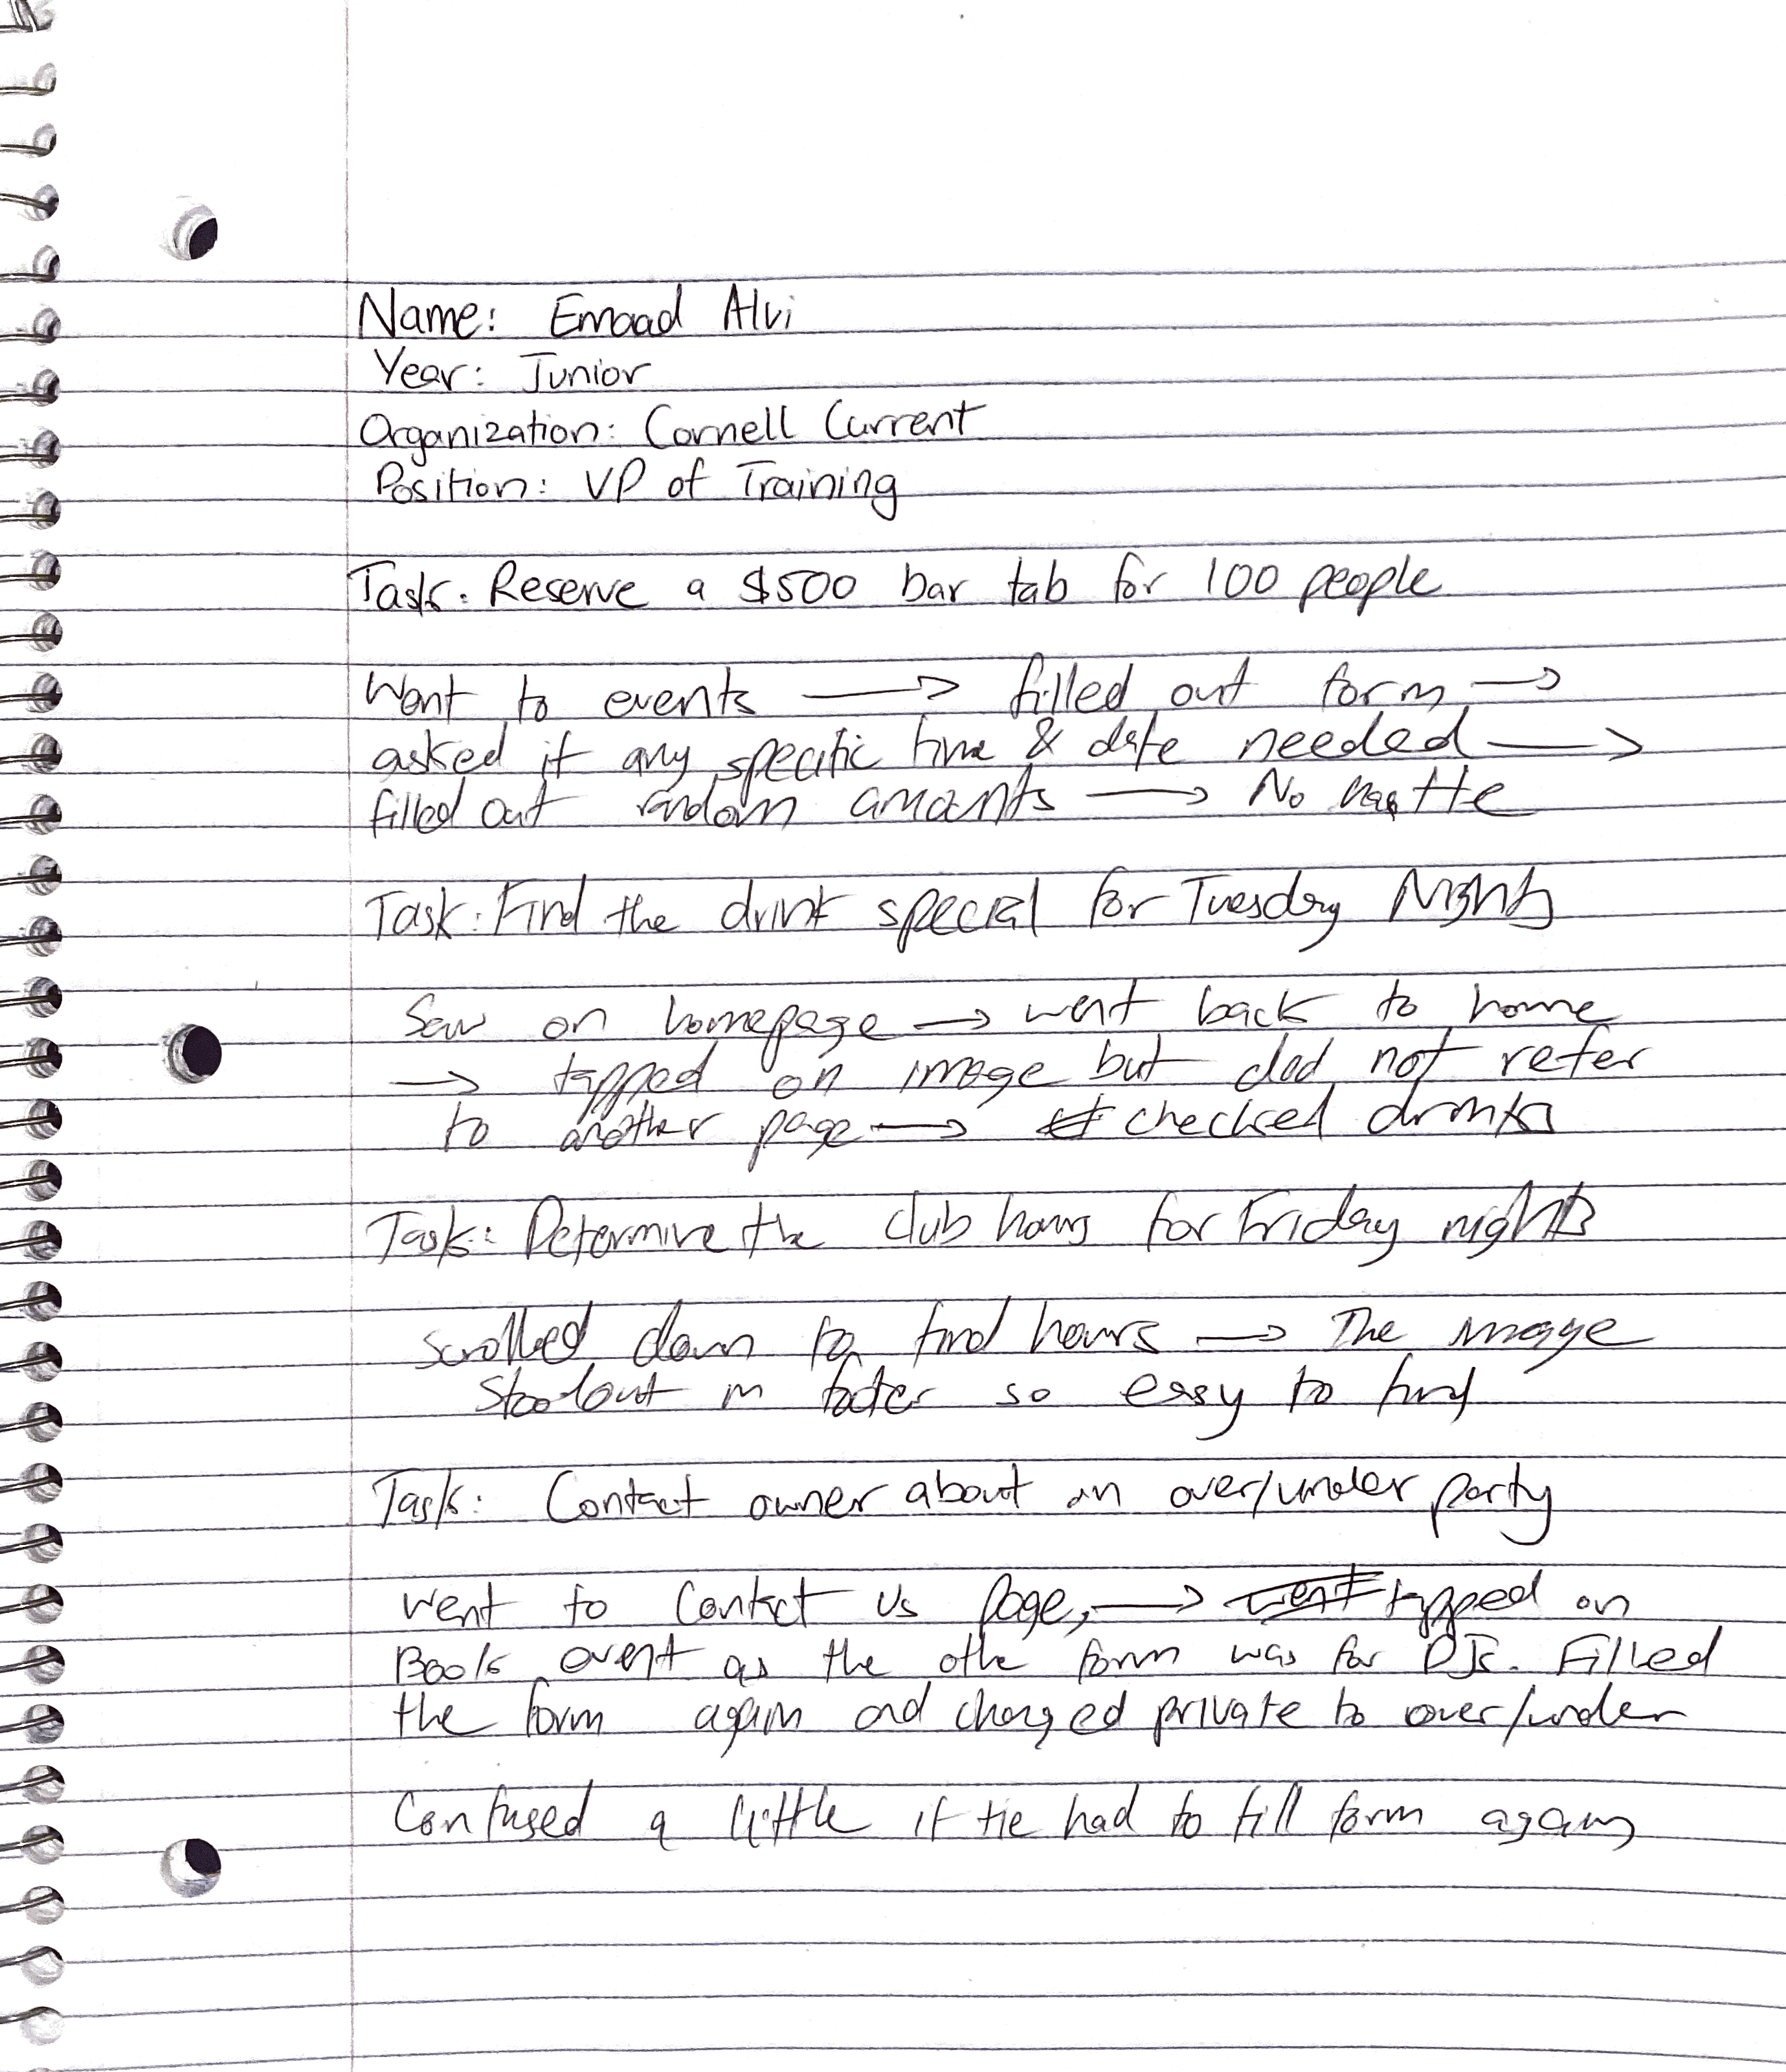 Name: Emaad Alvi
Year: Junior
Organization: Cornell Current
Position: VP of Training
Task: Reserve a $500 bar tab for 100 people
Went to events → filled out form →
asked if any specific time & date needed →
filled out random amounts → No
Task: Find the drink special for Tuesday Nights
Saw on homepage → went back to home
→ tapped on image but did not refer
to another page → checked drinks
Task: Determine the club hours for Friday nights
Scrolled down to find hours → The image
stood out in footer so easy to find
Task: Contact owner about an over/under party
went to Contact Us Page, → went tapped on
Book event as the othe form was for DJs. Filled
the form again and changed private to over/under
Confused a little if he had to fill form again